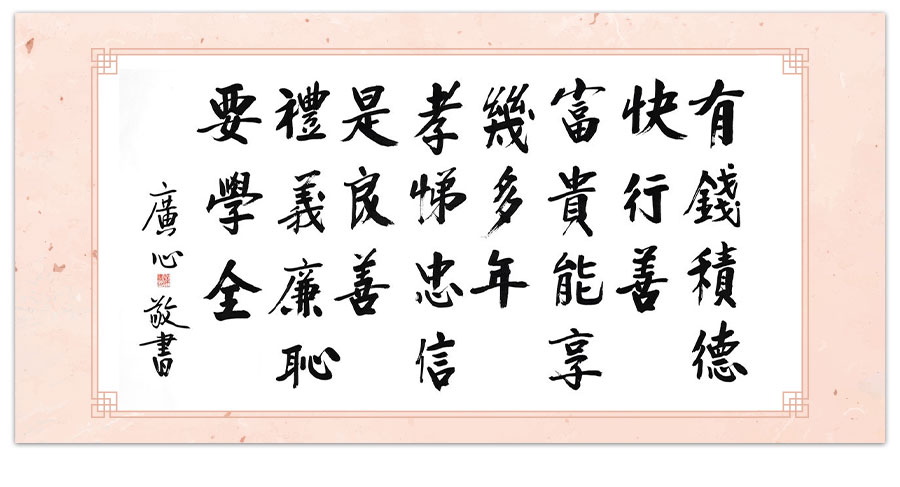 有錢積德
快行善
富貴能享
幾多年
孝悌忠信
是良善
禮義廉恥
要學全
廣心敬書